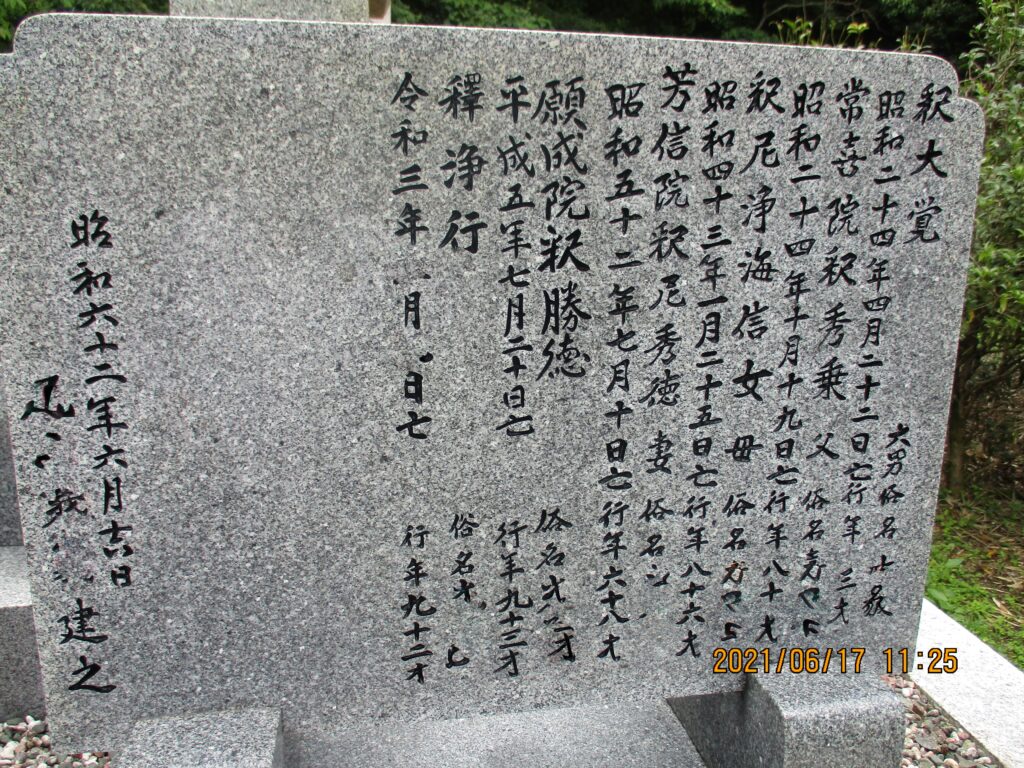 釈大覚
昭和二十四年四月二十二日亡行年三才
常喜院釈秀乗 父 俗名
昭和二十四年十月十九日亡行年八十才
釈尼浄海信女 母 俗名
昭和四十三年一月二十五日亡行年八十六才
芳信院釈尼秀徳 妻 俗名
昭和五十二年七月十日亡行年六十八才
願成院釈勝徳 俗名
平成五年七月二十日亡 行年九十三才
釋浄行 俗名
令和三年 月 日亡 行年九十二才
昭和六十二年六月吉日
建之
2021/06/17 11:25